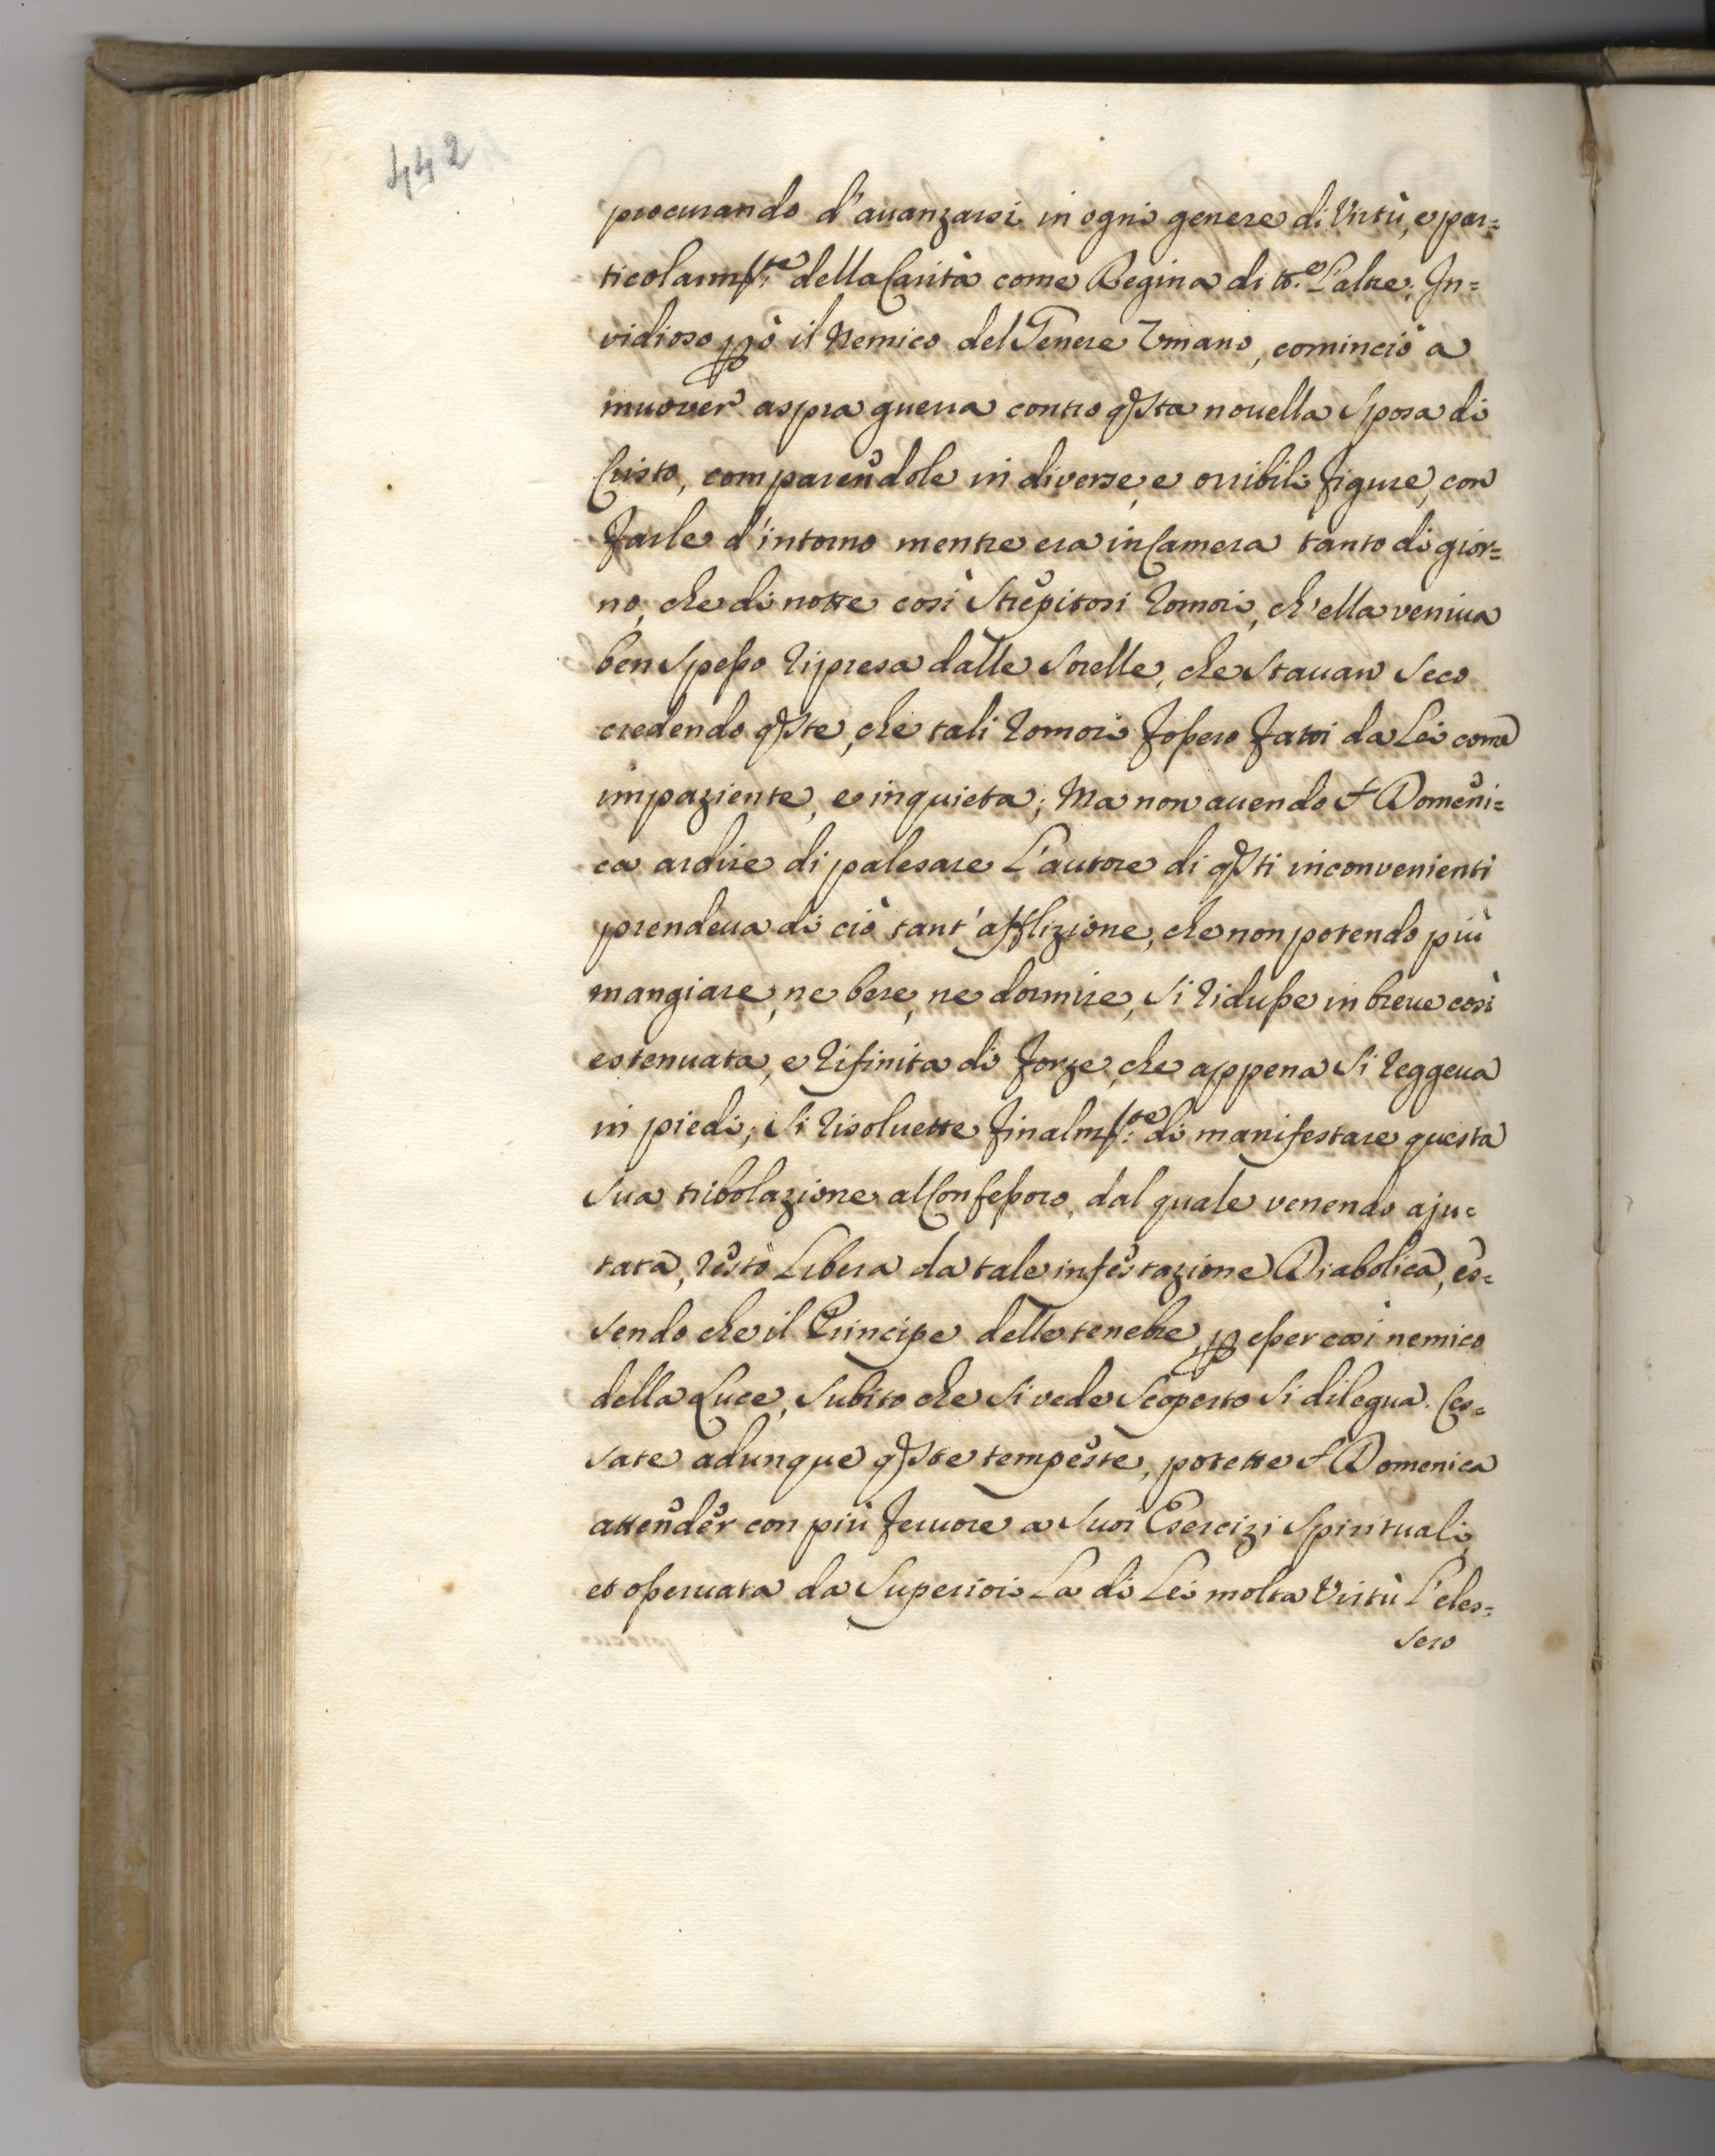 442
procurando d'auanzarsi in ogni genere di Virtù, e par=
ticolarm:te della Carità come Regina di tt.e L'altre. In=
vidioso però il Nemico del Genere Vmano, cominciò a
muover aspra guerra contro qsta nouella Sposa di
Cristo, comparendole in diverse, e orribili figure, con
farle d'intorno mentre era in Camera tanto di gior=
no, che di notte così Strepitosi Romori, ch'ella veniua
ben Spesso Ripresa dalle Sorelle, che Stauan Seco
credendo qste, che tali Romori fossero fatti da Lei come
impaziente, e inquieta; Ma non auendo S Domeni=
ca ardire di palesare L'autore di qsti inconvenienti
prendeua di ciò tant'afflizione, che non potendo più
mangiare, ne bere, ne dormire, Si Ridusse in breue così
estenuata, e Rifinita di forze, che appena Si Reggeua
in piedi; Si Risoluette finalm:te di manifestare questa
Sua tribolazione al Confessoro, dal quale venendo aju=
tata, Restò Libera da tale infestazione Diabolica, es=
sendo che il Principe delle tenebre, per esser così nemico
della Luce, Subito che Si vede Scoperto Si dilegua. Ces=
sate adunque qste tempeste, potette S Domenica
attender con più feruore a Suoi Esercizi Spirituali,
et osseruata da Superiori La di Lei molta Virtù L'eles=
sero